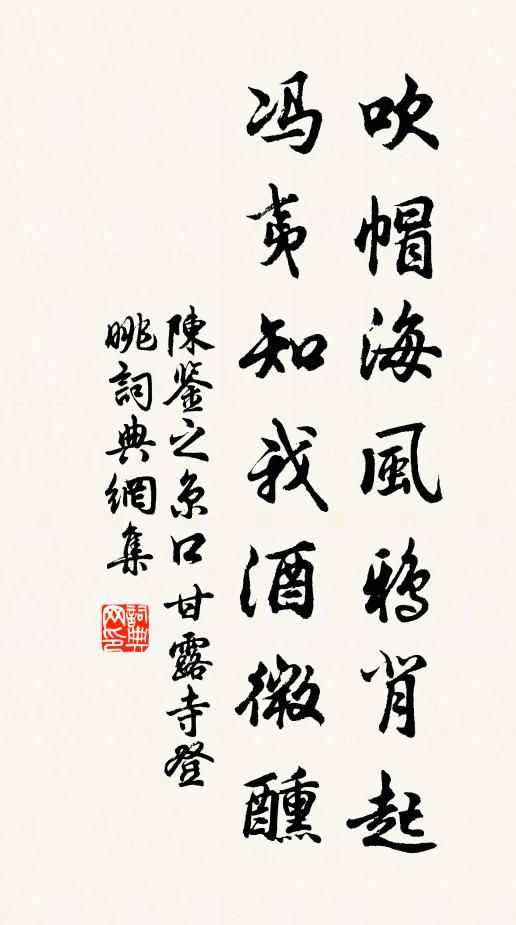 吹帽海風鴉背起
冯夷知我酒微醺
陳鉴之京口甘露寺登
眺詞典網集
詞典
网印